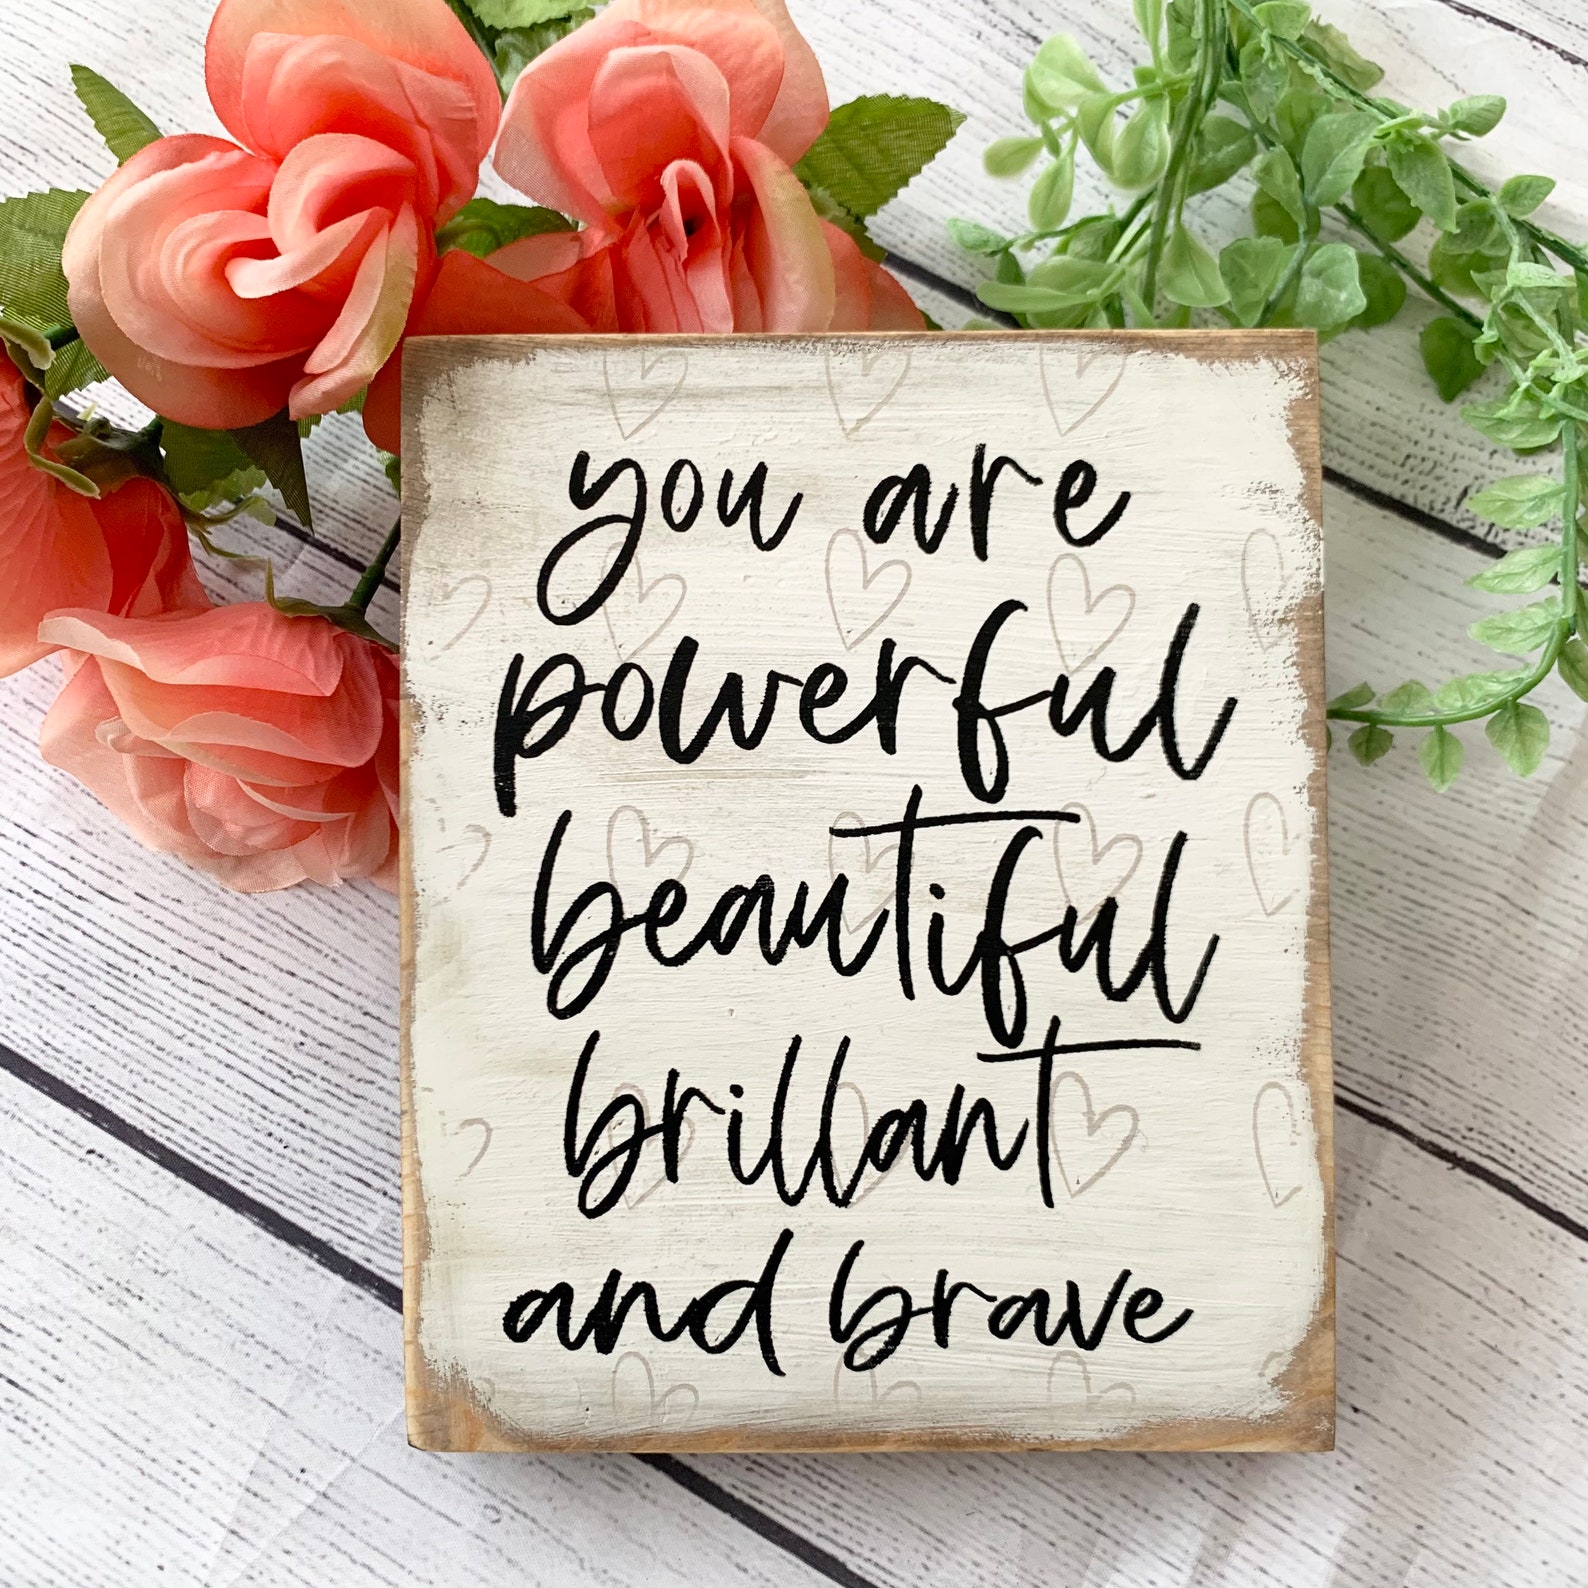 you are
powerful
beautiful
brillant
and brave